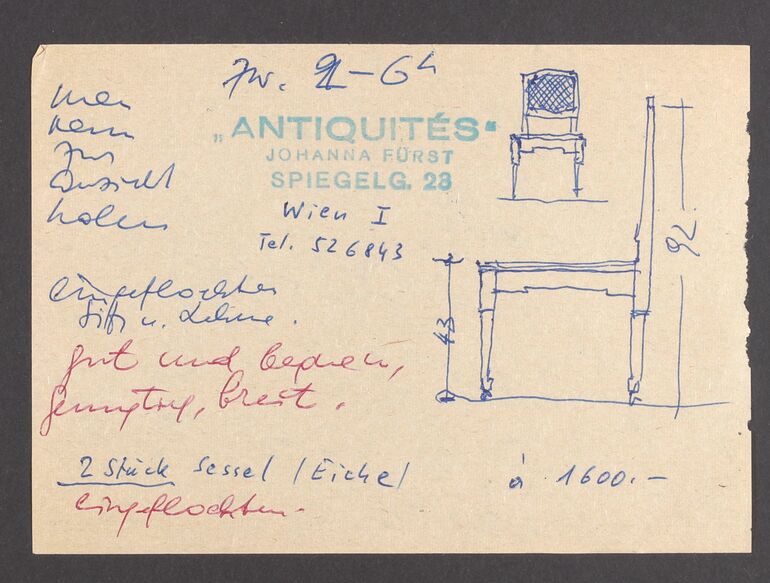 zw. 2-6h
„ANTIQUITÉS“
JOHANNA FÜRST
SPIEGELG. 23
Wien I
Tel. 526843
man
kann
zur
Ansicht
holen
eingeflochten
Sitz u. Lehne.
gut und bequem,
breit.
2 Stück Sessel (Eiche)
à 1600.-
eingeflochten.
43
92